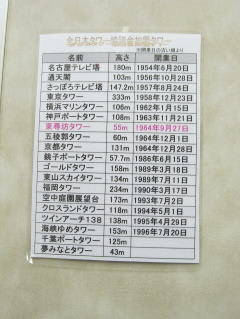 全日本タワー協議会加盟タワー
※開業日の古い順より
名前 高さ 開業日
名古屋テレビ塔 180m 1954年6月20日
通天閣 103m 1956年10月28日
さっぽろテレビ塔 147.2m 1957年8月24日
東京タワー 333m 1958年12月23日
横浜マリンタワー 106m 1961年1月15日
神戸ポートタワー 108m 1963年11月21日
東尋坊タワー 55m 1964年9月27日
五稜郭タワー 60m 1964年12月1日
京都タワー 131m 1964年12月28日
銚子ポートタワー 57.7m 1991年6月21日
ゴールドタワー 158m
東山スカイタワー 134m 1989年7月11日
福岡タワー 234m
空中庭園展望台 173m 1993年7月1日
クロスランドタワー 118m 1994年5月1日
ツインアーチ138 138m 1995年4月29日
海峡ゆめタワー 153m 1996年7月20日
千葉ポートタワー 125m
夢みなとタワー 43m